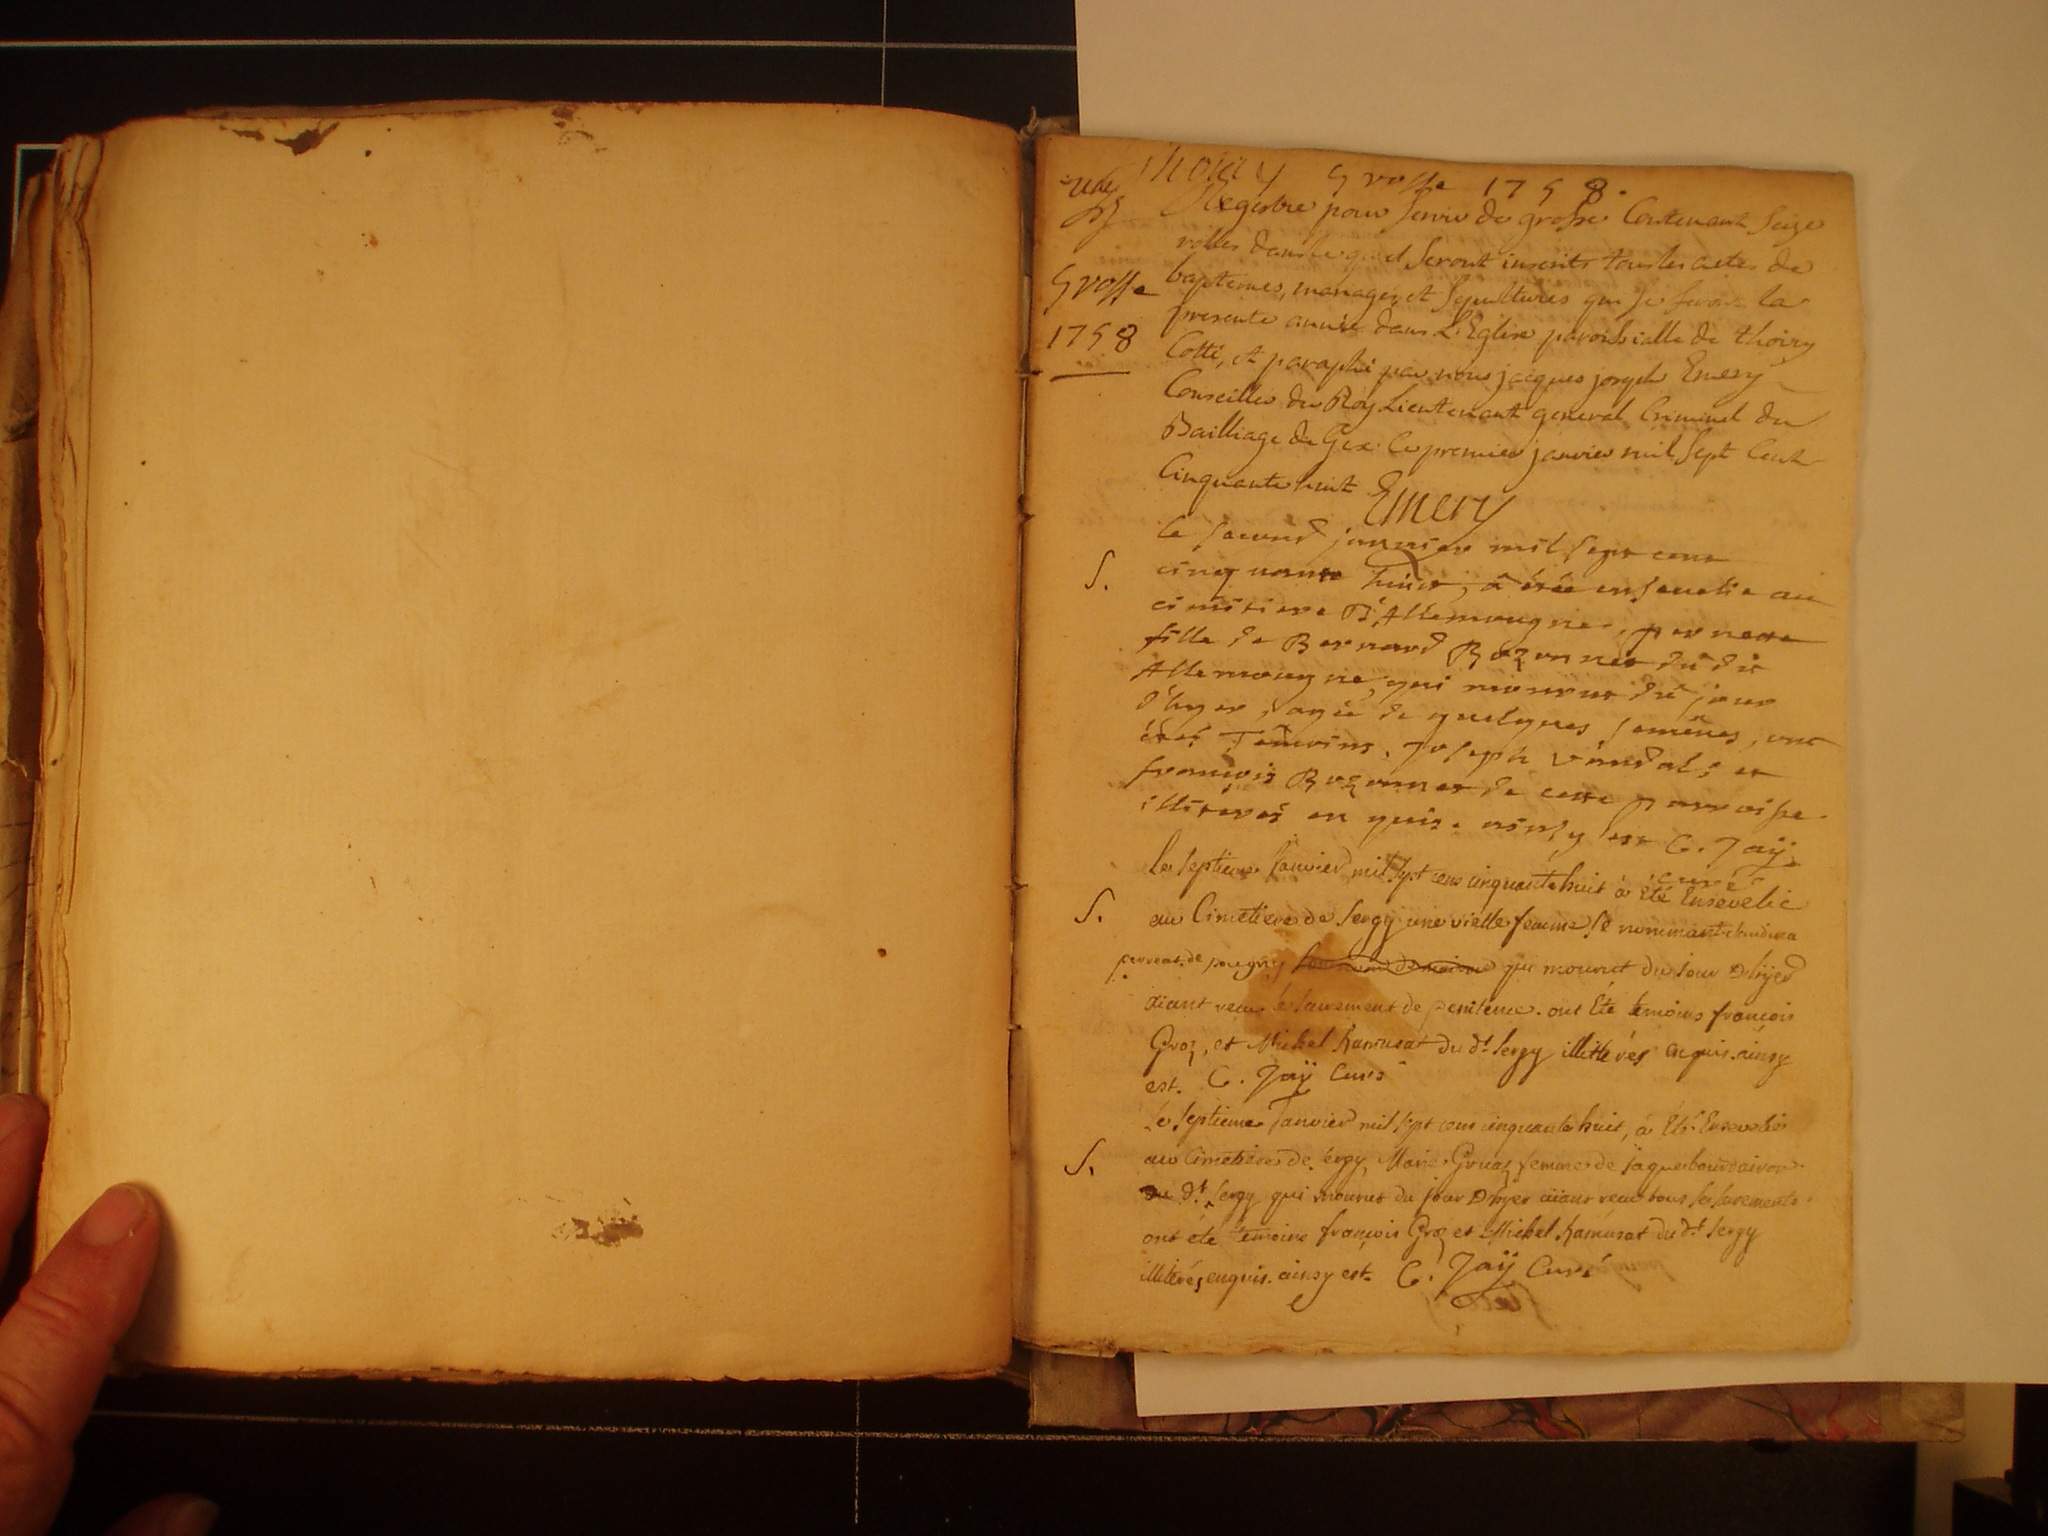 Thoiry Grosse 1758.
Registre pour servir de grosse Contenant seize
rolles dans lequel seront inscrits tous les actes de
baptemes, mariages, et sepultures qui se feront la
presente année dans L'Eglise paroissialle de thoiry
Cotté, et paraphé par nous jacques joseph Emery
Conseiller du Roy Lieutenant general Criminel du
Bailliage de Gex. Ce premier janvier mil sept Cent
Cinquante huit Emery
Grosse
1758
le second janvier mil sept cent
S. cinquante huict, a étée ensevelie au
cimitiere d'Allemougne, pernette
fille de Bernard Rozonnet du dit
Allemougne, qui mourut du jour
d'hyer, agée de quelques semênes, ont
étés Témoins, Joseph Vandal, et
françois Rozonnet de cette parroisse
illiterés en quis. ainsy est C. Jaÿ
curé
le septieme Janvier mil sept cens cinquante huit à Eté Ensevelie
S. au Cimetiere de Sergy une vielle femme se nommant
de pougny qui mourut du jour d'hÿer
aïant recu le sacrement de penitence. ont Eté temoins françois
Groz, et Michel Ramusat du dt Sergy illitterés enquis. ainsy
est. C. Jaÿ Curé
le septieme Janvier mil sept cens cinquante huit, à Eté Ensevelie
S. au Cimetiere de sergy, Marie Gruaz femme de jaque
du dt Sergy qui mourut du jour d'hyer aïant recu tous les sacrements.
ont été temoins françois Groz et Michel Ramusat du dt Sergy
illiterés enquis. ainsy est. C. Jaÿ Curé